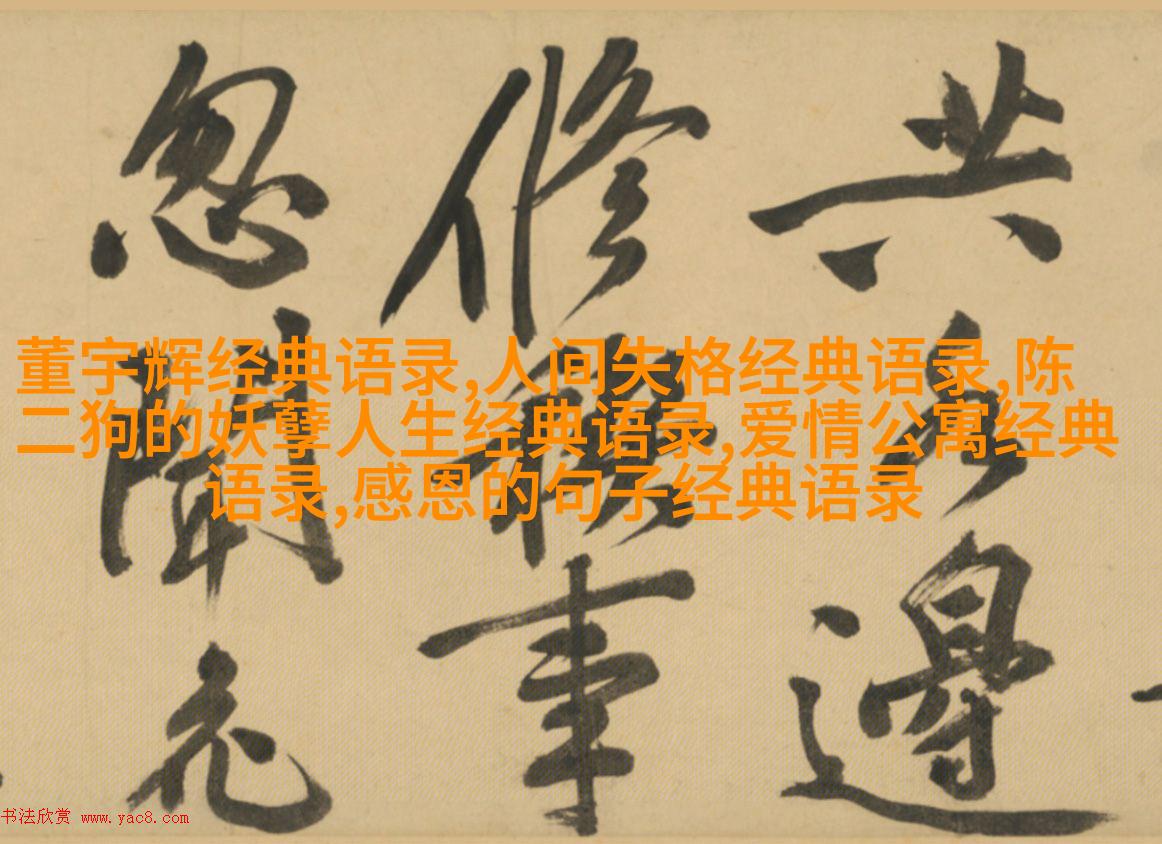 共邊
修禊事
忽聞
董宇辉经典语录,人间失格经典语录,陈
二狗的妖孽人生经典语录,爱情公寓经典
语录,感恩的句子经典语录
书法欣赏 www.yac8.com